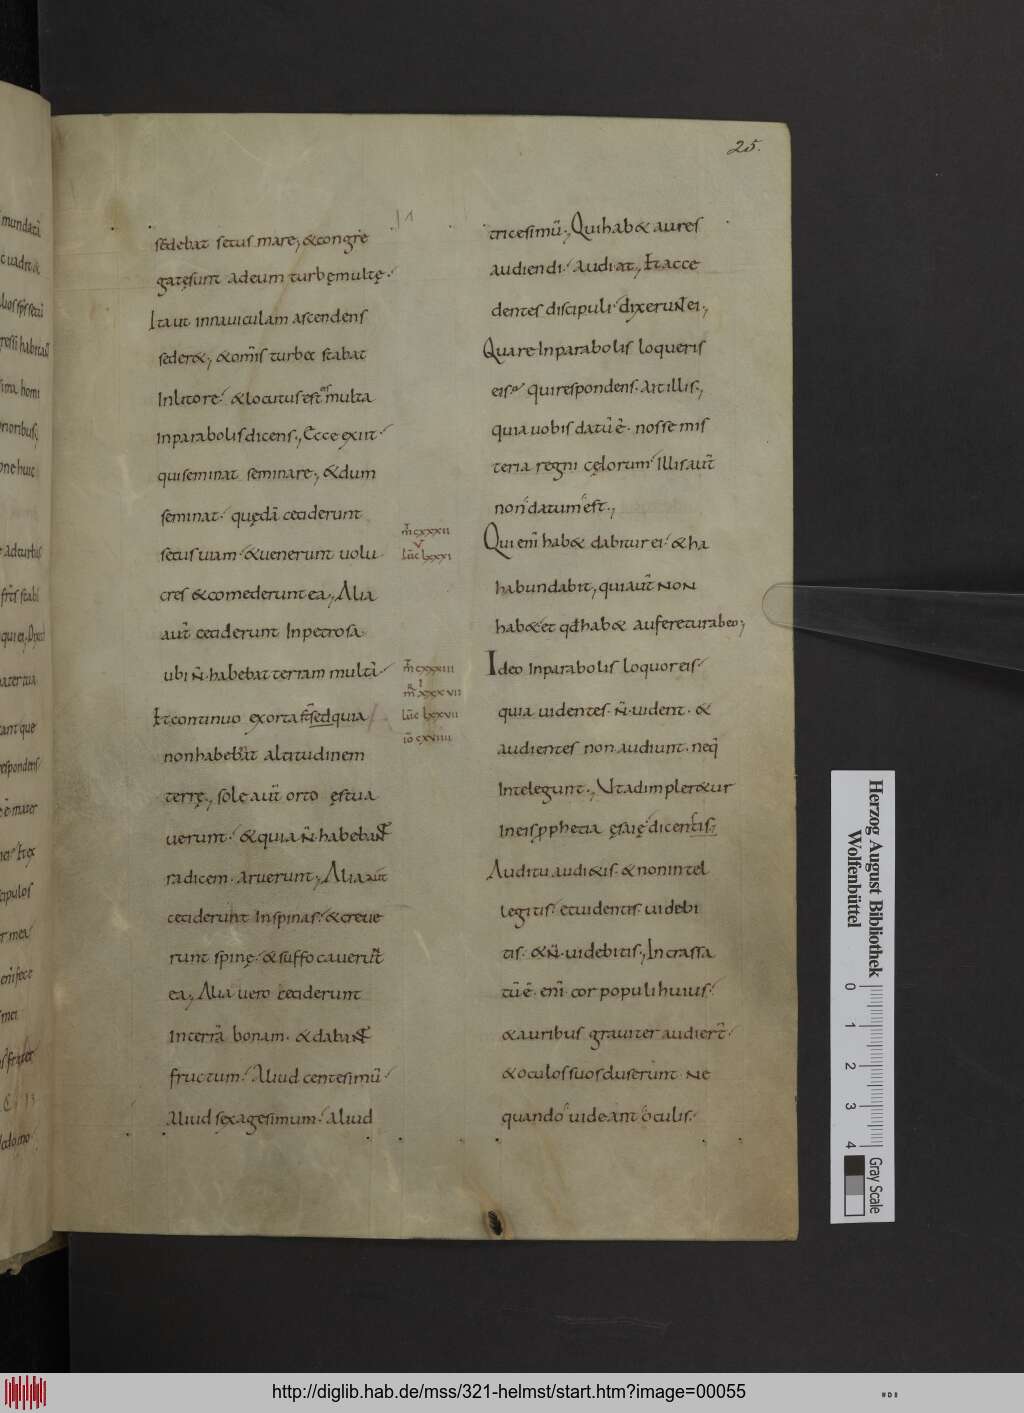 25.
sedebat secus mare, & congre
gatę sunt ad eum turbę multę.
Ita ut in nauiculam ascendens
seder&, & om̄s turba stabat
In litore. & locutus est eis multa
in parabolis dicens, Ecce exiit
qui seminat seminare, & dum
seminat. quędā ceciderunt
secus uiam. & uenerunt uolu
cres & comederunt ea, Alia
aut̄ ceciderunt In petrosa
ubi n̄. habebat terram multā.
Et continuo exorta s̄ sed quia
non habebāt altitudinem
terrę, sole aut̄ orto ęstua
uerunt. & quia n̄. habebant
radicem. aruerunt, Alia aut̄
ceciderunt In spinas. & creue
runt spinę. & suffocauerunt
ea, Alia uero ceciderunt
In terrā bonam. & dabant
fructum. Aliud centesimū.
Aliud sexagesimum. aliud
m̄ cxxxii
luc̄ lxxvi
m̄ cxxxiii
m̄r xxxvii
luc̄ lxxvii
iō cxviiii
tricesimū, Qui hab& aures
audiendi. Audiat, Et acce
dentes discipuli. dixerunt ei,
Quare In parabolis loqueris
eis. qui respondens. Ait illis,
quia uobis datū ē. nosse mis
teria regni cęlorum. Illis aut̄
non datum est,
Qui enī hab& dabitur ei. & ha
habundabit, qui aut̄ non
hab& et qd̄ hab& auferetur ab eo,
Ideo In parabolis loquor eis.
quia uidentes. n̄. uident. &
audientes non audiunt. neq̄
Intelegunt, Ut adimpler&ur
In eis pphetia ęsaię dicentis,
Auditu audi&is. & non intel
legitis. et uidentes. uidebi
tis. & n̄. uidebitis, Incrassa
tū ē. enī cor populi huius.
& auribus grauiter audier̄t.
& oculos suos cluserunt Ne
quando uideant oculis.
Herzog August Bibliothek
Wolfenbüttel
0 1 2 3 4 Gray Scale
http://diglib.hab.de/mss/321-helmst/start.htm?image=00055